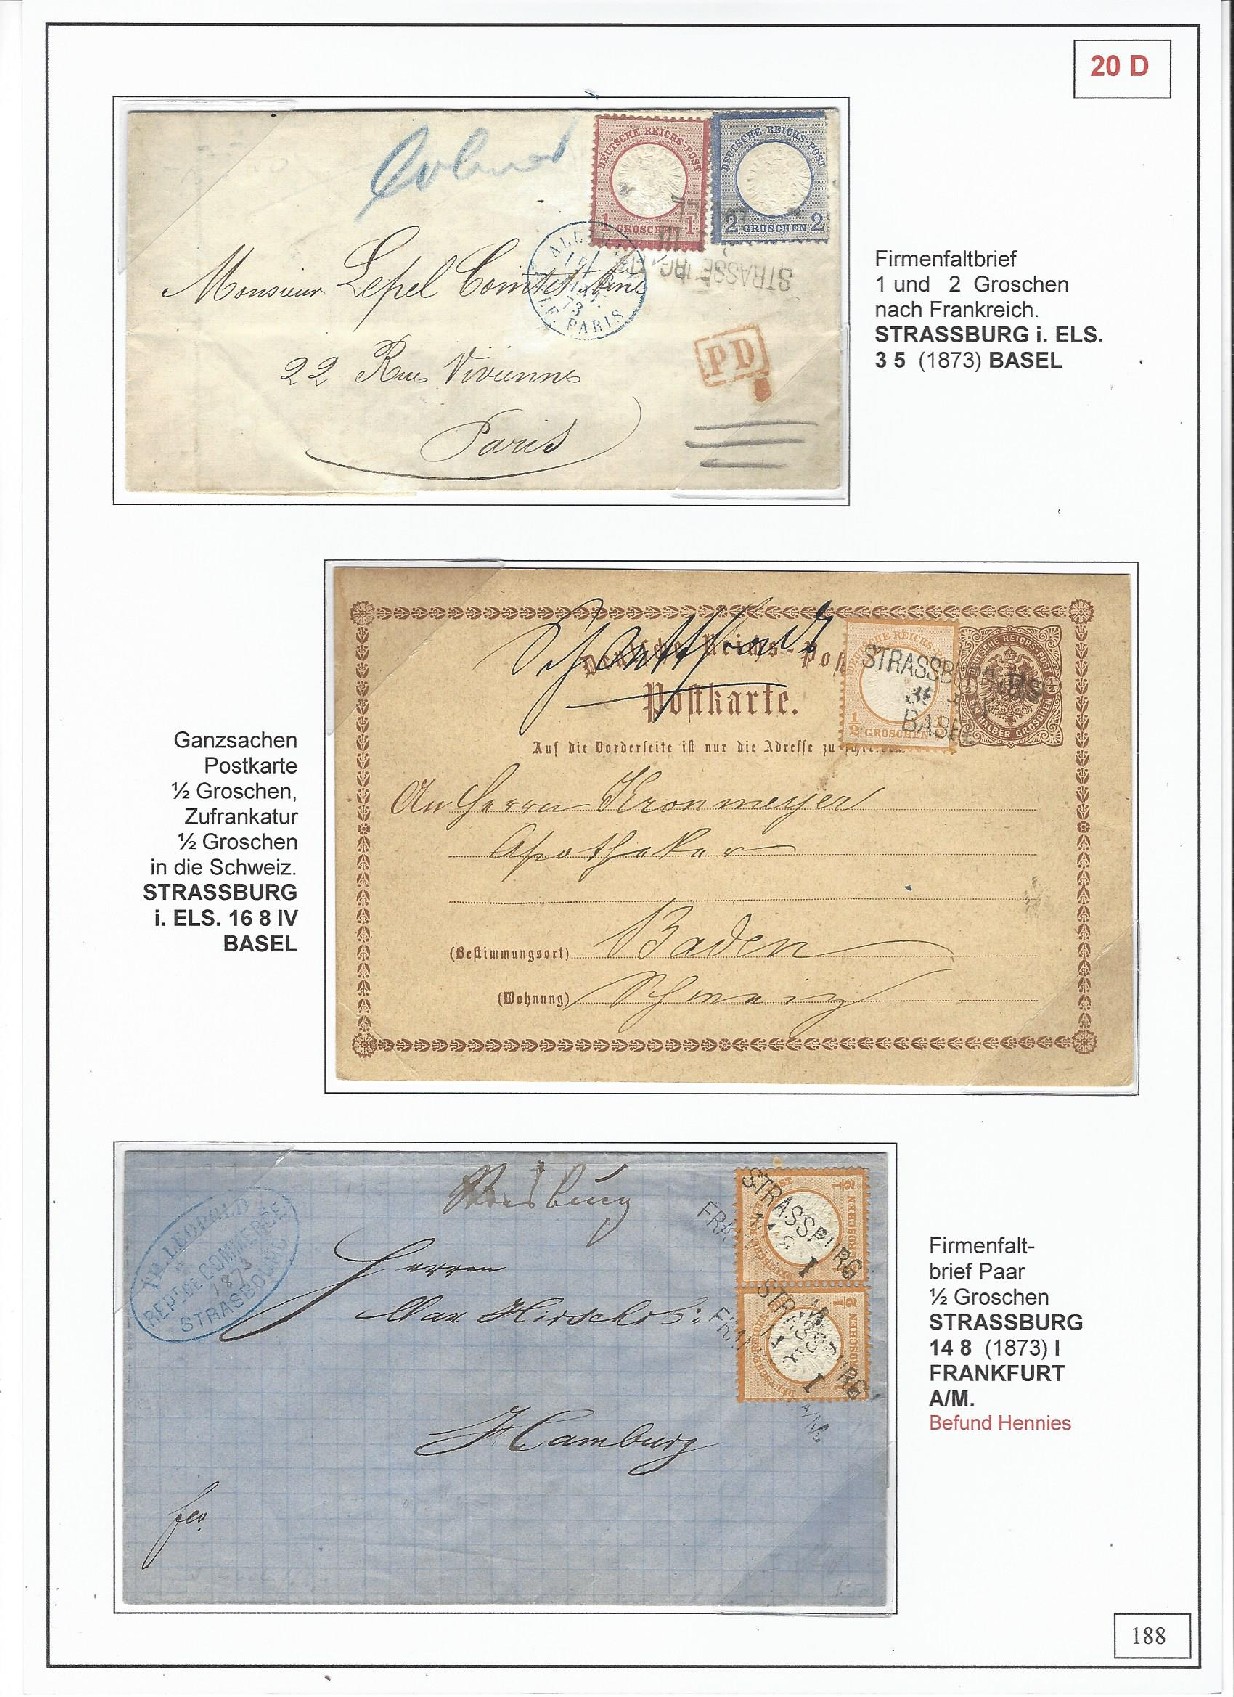 20 D
DEUTSCHE REICHS-POST
1 GROSCHEN 1
DEUTSCHE REICHS-POST
2 GROSCHEN 2
STRASSBURG
PARIS
73
Monsieur Lepel Cointet
22 Rue Vivienne
Paris
PD
Firmenfaltbrief
1 und 2 Groschen
nach Frankreich.
STRASSBURG i. ELS.
3 5 (1873) BASEL
Deutsche Reichs-Post
Postkarte.
Auf die Vorderseite ist nur die Adresse zu schreiben.
STRASSBURG i. ELS
BASEL
½ GROSCHEN
An Herrn Kronmeyer
Apotheker
(Bestimmungsort) Baden
(Wohnung) Schweiz
Ganzsachen
Postkarte
½ Groschen,
Zufrankatur
½ Groschen
in die Schweiz.
STRASSBURG
i. ELS. 16 8 IV
BASEL
LEOPOLD
REPT DE COMMERCE
1873
STRASBOURG
Herren
Max Hirsch
Hamburg
fco
STRASSBURG
I
STRASSBURG
I
A/M.
Firmenfalt-
brief Paar
½ Groschen
STRASSBURG
14 8 (1873) I
FRANKFURT
A/M.
Befund Hennies
188